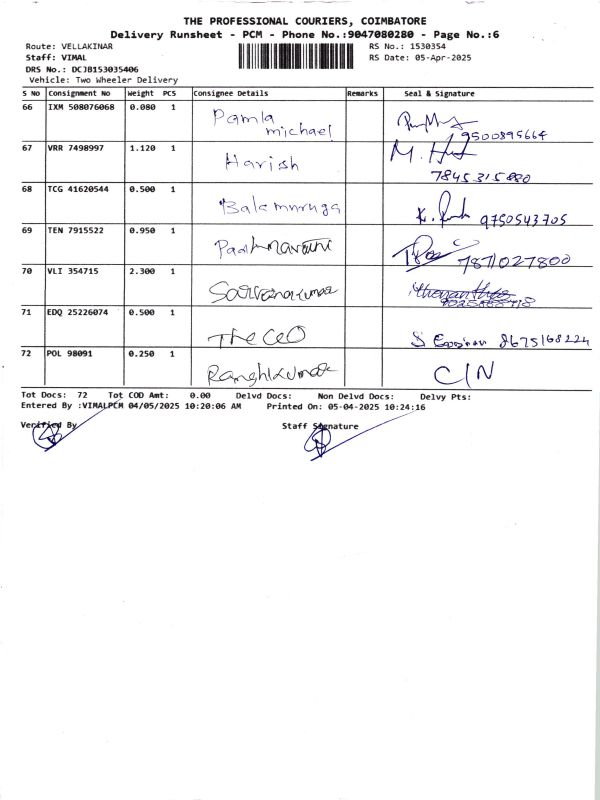 THE PROFESSIONAL COURIERS, COIMBATORE
Delivery Runsheet - PCM - Phone No.:9047080280 - Page No.:6
Route: VELLAKINAR
RS No.: 1530354
Staff: VIMAL
RS Date: 05-Apr-2025
DRS No.: DCJB153035406
Vehicle: Two Wheeler Delivery
S No Consignment No Weight PCS Consignee Details Remarks Seal & Signature
66 IXM 508076068 0.080 1 Pamla michael 9500895664
67 VRR 7498997 1.120 1 Harish M. 7845315880
68 TCG 41620544 0.500 1 Balamuruga K. 9750543705
69 TEN 7915522 0.950 1 7871027800
70 VLI 354715 2.300 1
71 EDQ 25226074 0.500 1 The CEO S 8675168224
72 POL 98091 0.250 1 C/N
Tot Docs: 72 Tot COD Amt: 0.00 Delvd Docs: Non Delvd Docs: Delvy Pts:
Entered By :VIMALPCM 04/05/2025 10:20:06 AM Printed On: 05-04-2025 10:24:16
Verified By
Staff Signature